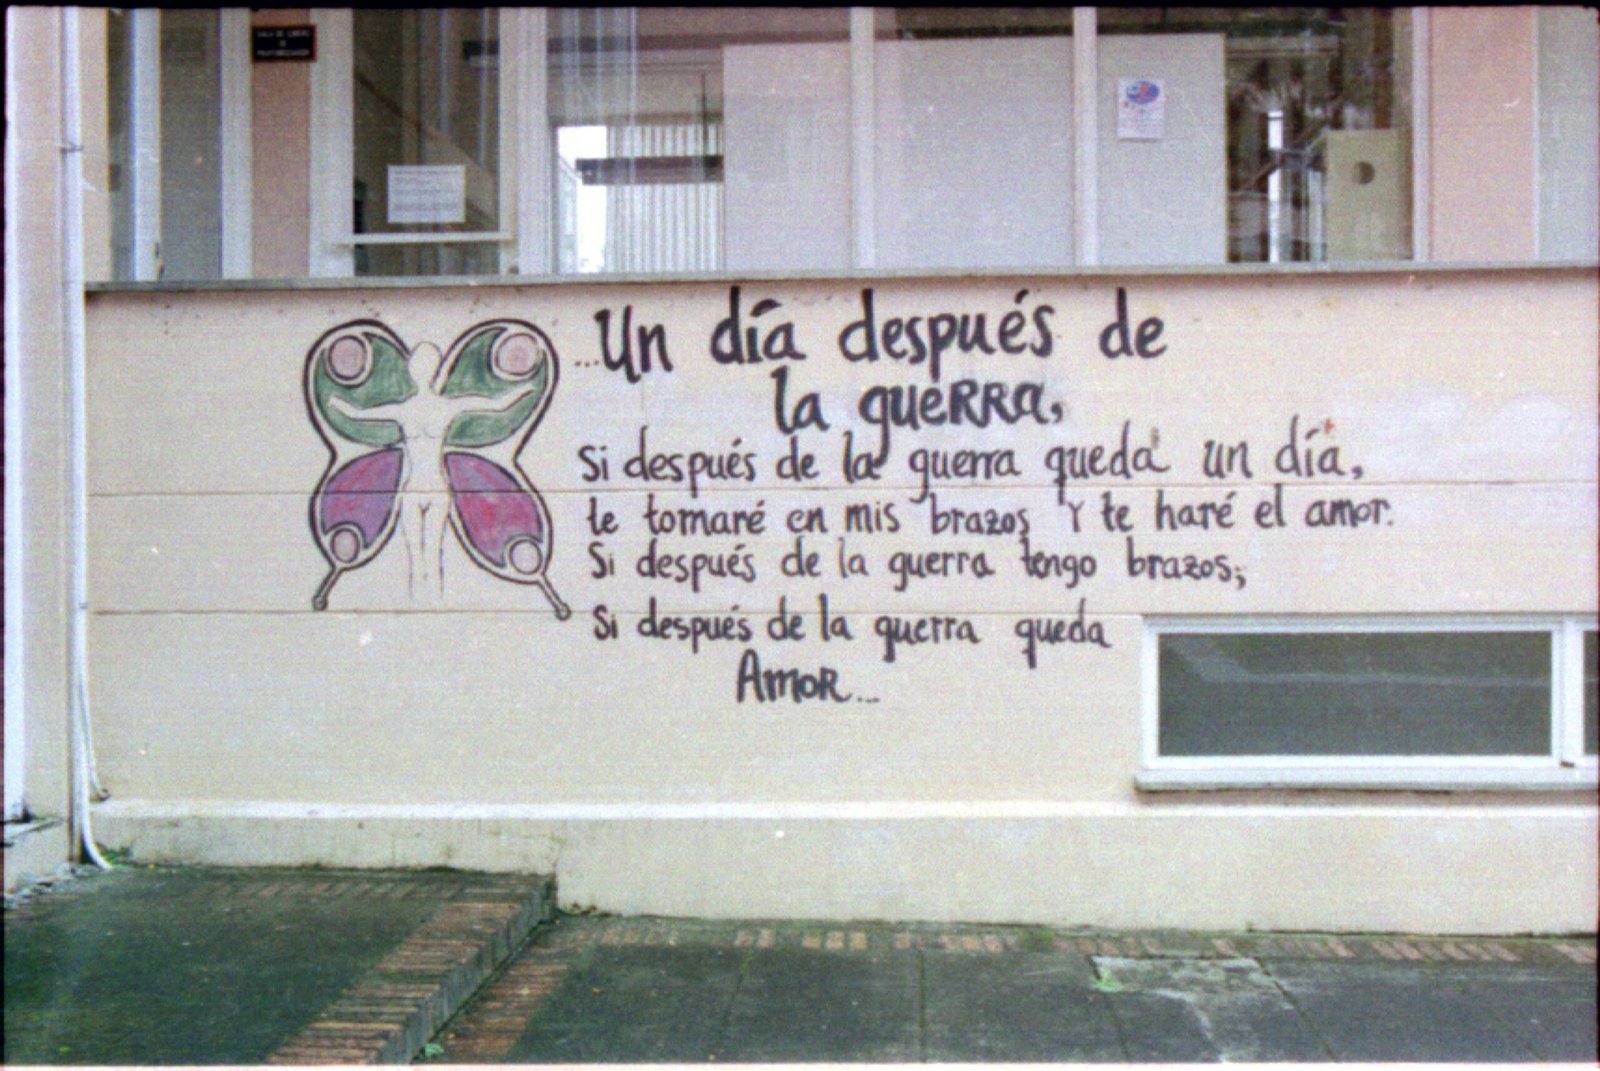 ...Un día después de
la guerra,
Si después de la guerra queda un día,
te tomaré en mis brazos Y te haré el amor.
Si después de la guerra tengo brazos;
Si después de la guerra queda
Amor...